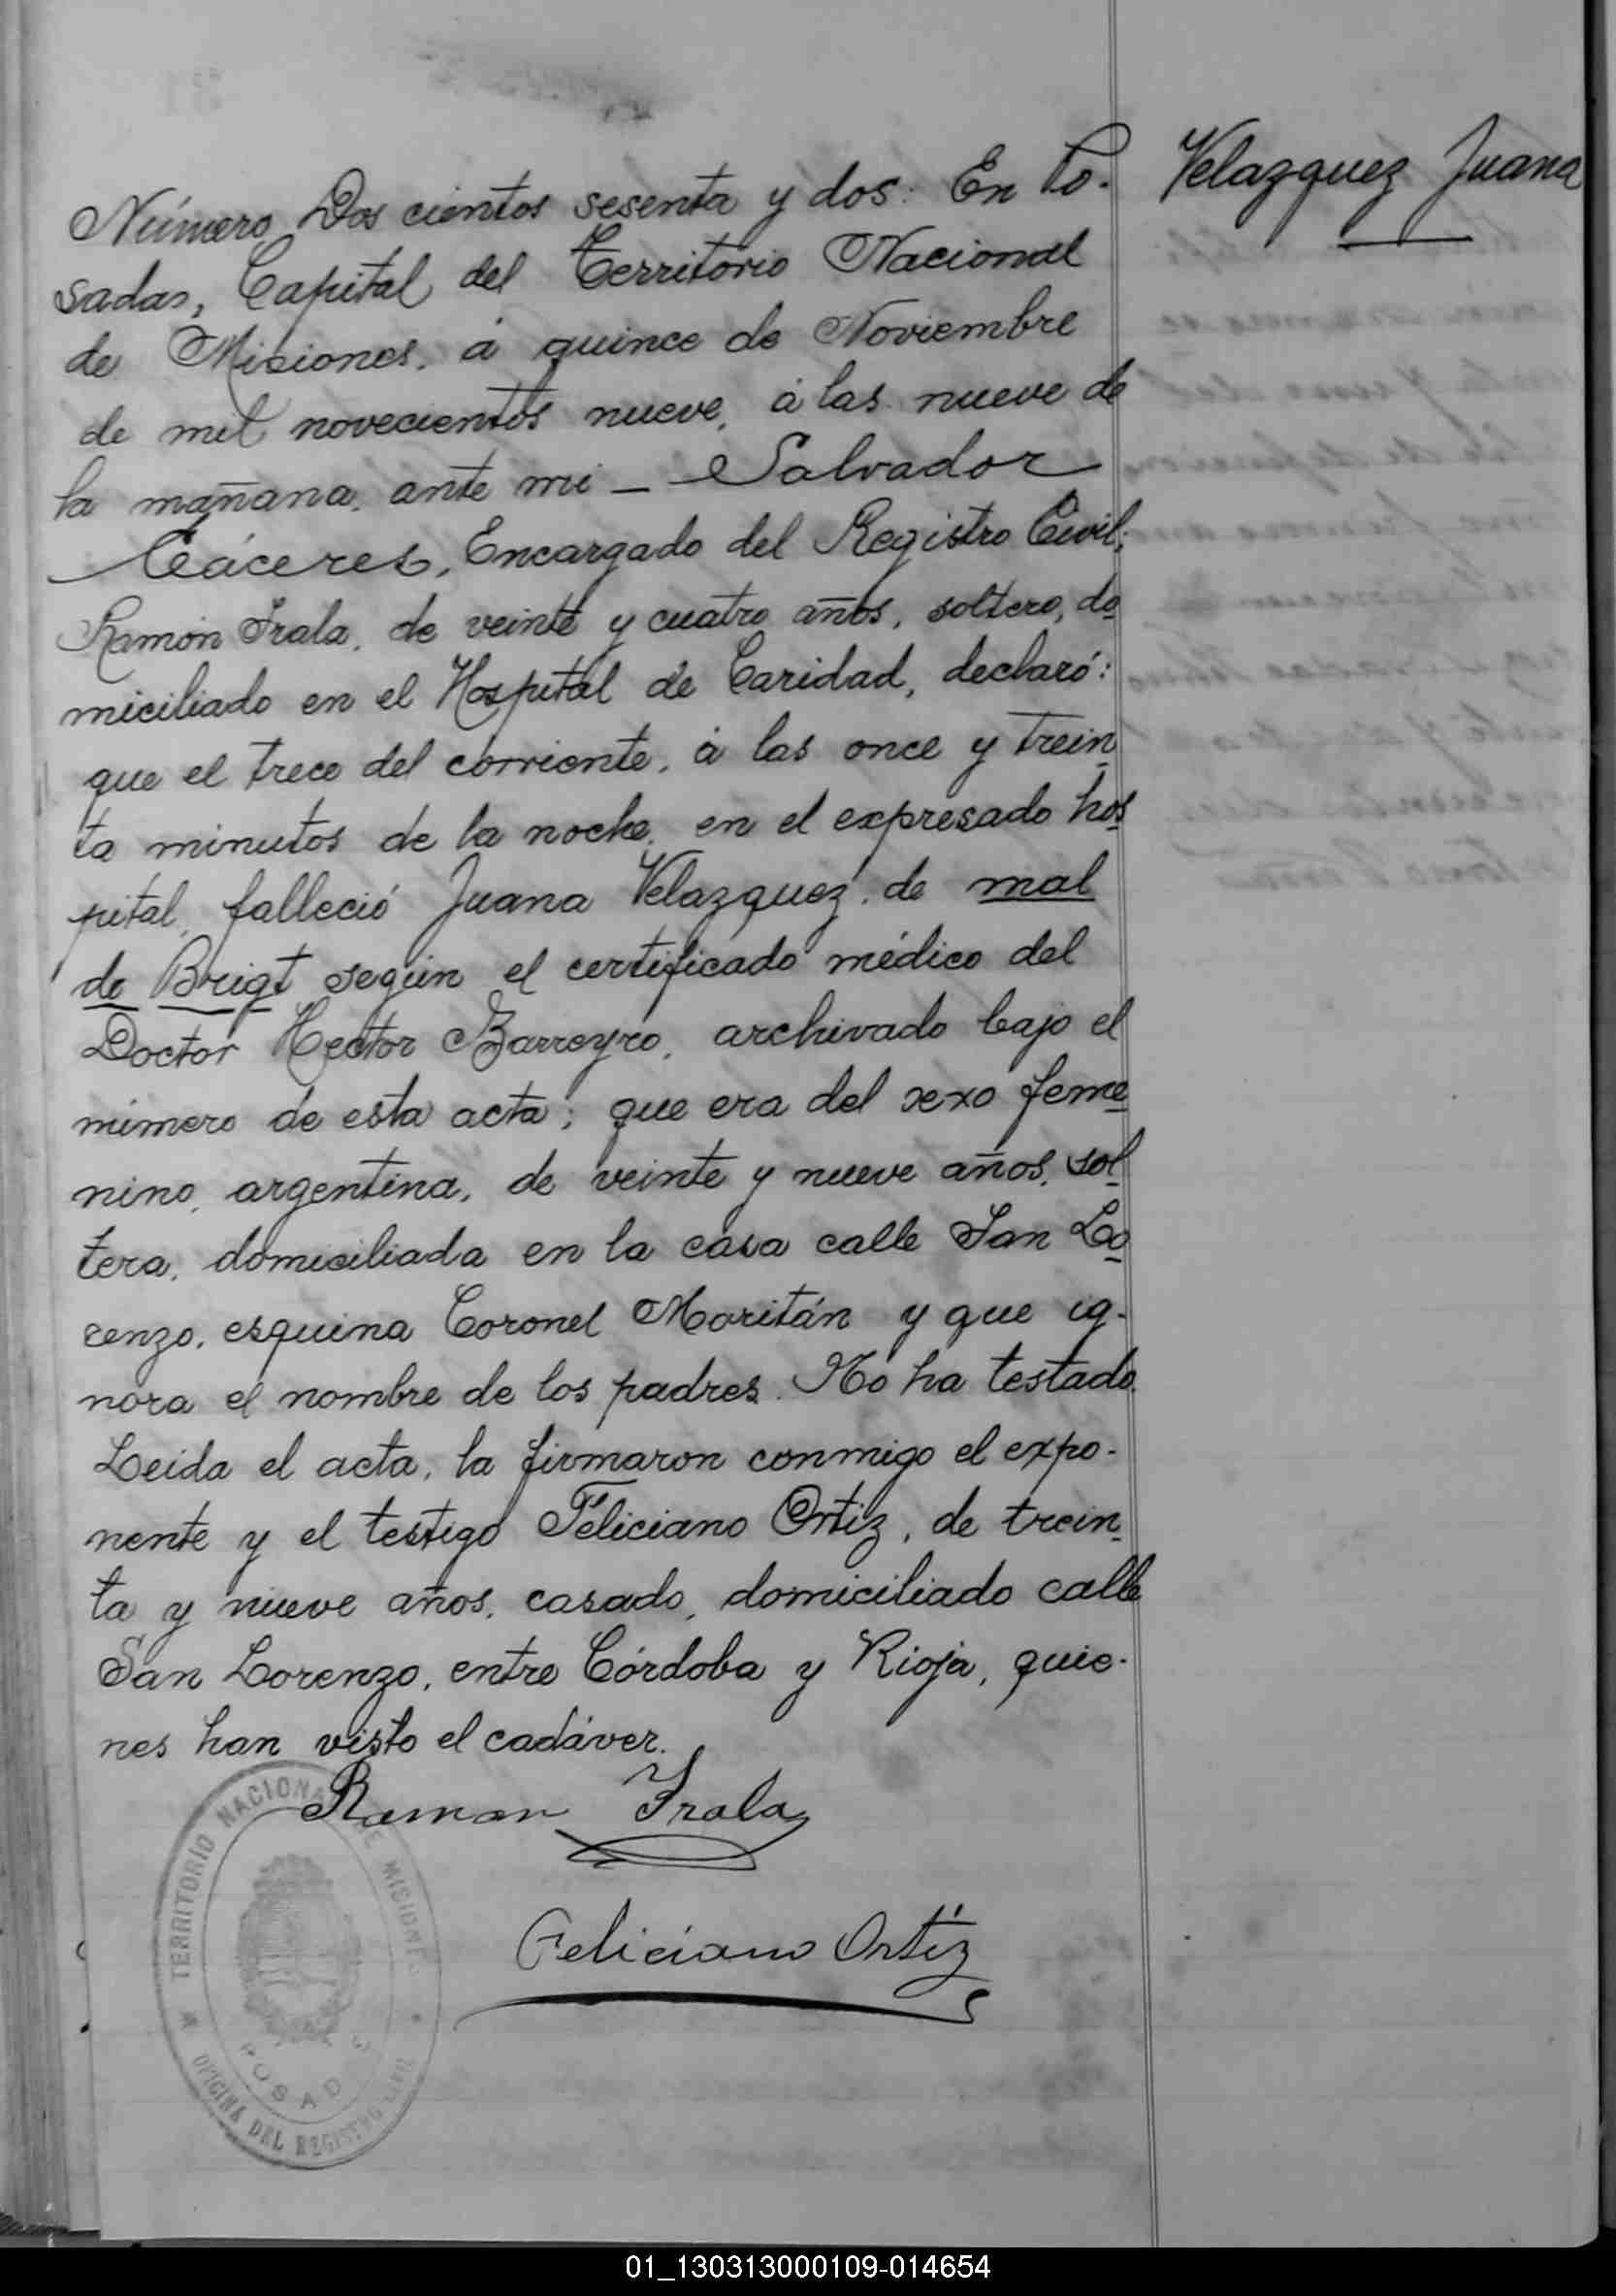 Velazquez Juana
Número Dos cientos sesenta y dos: En Po-
sadas, Capital del Territorio Nacional
de Misiones, á quince de Noviembre
de mil novecientos nueve, á las nueve de
la mañana, ante mi — Salvador
Cáceres, Encargado del Registro Civil;
Ramón Irala, de veinte y cuatro años, soltero, do
miciliado en el Hospital de Caridad, declaró:
que el trece del corriente, á las once y trein
ta minutos de la noche, en el expresado hos
pital, falleció Juana Velazquez, de mal
de Brigt según el certificado médico del
Doctor Hector Barreyro, archivado bajo el
número de esta acta; que era del sexo feme
nino, argentina, de veinte y nueve años, sol
tera, domiciliada en la casa calle San Lo
renzo, esquina Coronel Moritán y que ig-
nora el nombre de los padres. No ha testado.
Leida el acta, la firmaron conmigo el expo-
nente y el testigo Feliciano Ortiz, de trein
ta y nueve años, casado, domiciliado calle
San Lorenzo, entre Córdoba y Rioja, quie-
nes han visto el cadáver.
Ramon Irala
Feliciano Ortiz
TERRITORIO NACIONAL DE MISIONES
POSADAS
OFICINA DEL REGISTRO CIVIL
01_130313000109-014654